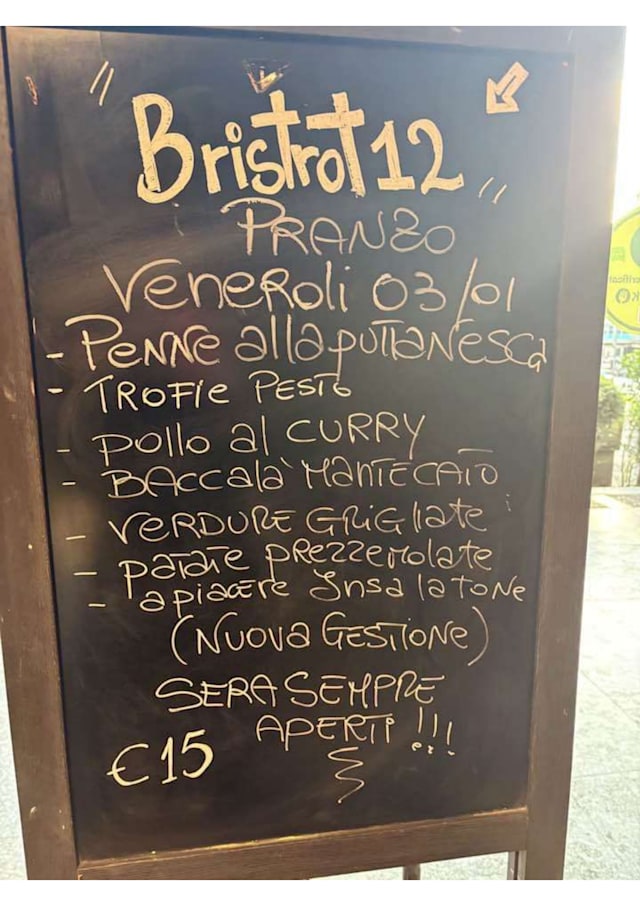 " Bristrot 12 "
PRANZO
VENERDI 03/01
- PENNE alla PUTTANESCA
- TROFIE PESTO
- POLLO al CURRY
- BACCALA' MANTECATO
- VERDURE GRIGliate
- PATATE PREZZEMOLATE
- a piacere Insalatone
(NUOVA GESTIONE)
SERA SEMPRE
APERTI !!!
€15